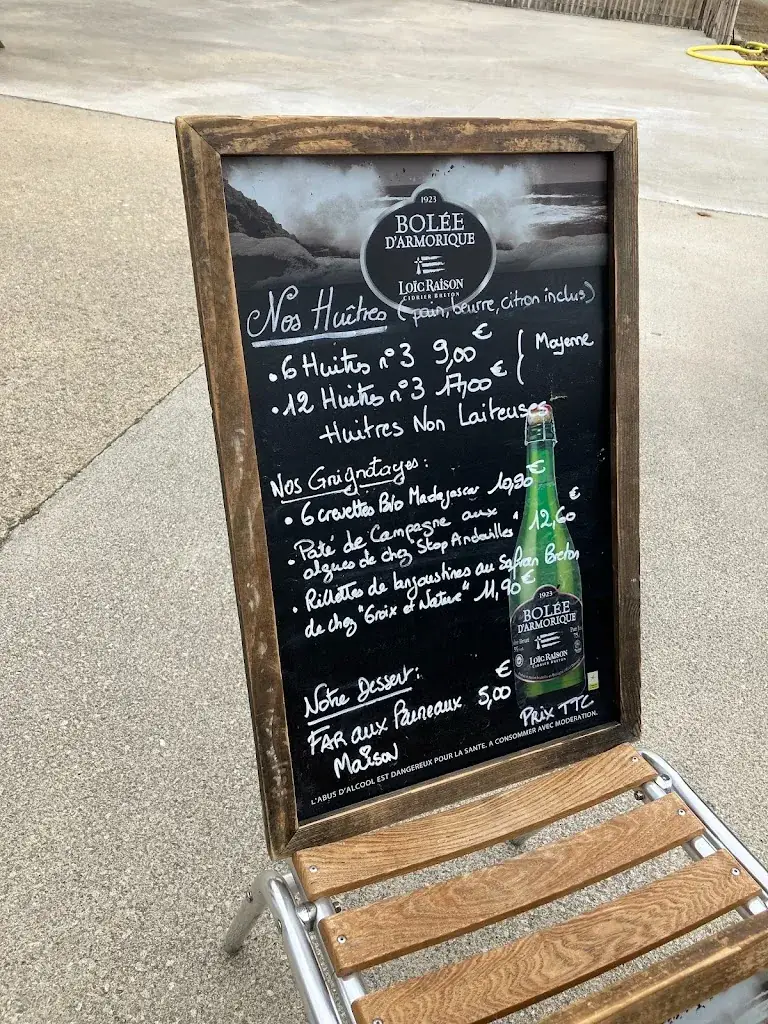 1923
BOLÉE
D'ARMORIQUE
LOÏC RAISON
CIDRIER BRETON
Nos Huîtres (pain, beurre, citron inclus)
• 6 Huitres n°3 9,00€
• 12 Huitres n°3 17,00€ { Moyenne
Huitres Non Laiteuses
Nos Grignotages :
• 6 crevettes Bio Madagascar 10,90€
• Paté de Campagne aux
algues de chez Stop Andouilles" 12,60€
• Rillettes de langoustines au Safran Breton
de chez "Groix et Nature" 11,90€
1923
BOLÉE
D'ARMORIQUE
LOÏC RAISON
CIDRIER BRETON
Notre Dessert :
FAR aux Pruneaux 5,00€
Maison
Prix TTC
L'ABUS D'ALCOOL EST DANGEREUX POUR LA SANTE. A CONSOMMER AVEC MODERATION.